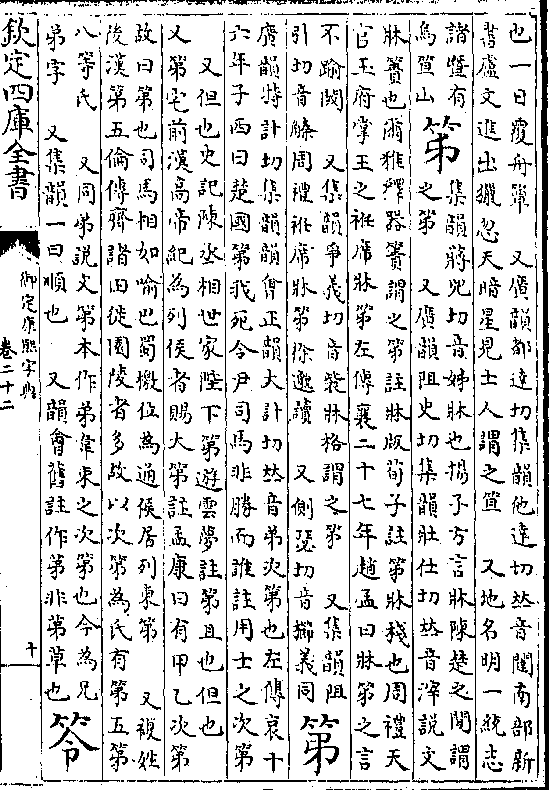 也一曰覆舟簞　又廣韻都達切集韻他達切𠀤音闥南部新
書盧文進出獵忽天暗星見土人謂之笪　又地名明一統志
諸暨有
為笪山
笫
集韻蔣兕切音姊牀也揚子方言牀陳楚之間謂
之笫　又廣韻阻史切集韻壯仕切𠀤音滓説文
牀簀也爾雅釋器簀謂之笫註牀版荀子註笫牀棧也周禮天
官玉府掌王之袵席牀笫左傳襄二十七年趙孟曰牀笫之言
不踰閾　又集韻爭義切音裝牀格謂之笫　又集韻阻
引切音䐜周禮袵席牀笫徐邈讀　又側瑟切音櫛義同
第
廣韻特計切集韻韻會正韻大計切𠀤音弟次第也左傳哀十
六年子西曰楚國第我死令尹司馬非勝而誰註用士之次第
又但也史記陳丞相世家陛下第遊雲夢註第且也但也
又第宅前漢高帝紀為列侯者賜大第註孟康曰有甲乙次第
故曰第也司馬相如喻巴蜀檄位為通侯居列東第　又複姓
後漢第五倫傳齊諸田徙園陵者多故以次第為氏有第五第
八等氏　又同弟説文第本作弟韋束之次第也今為兄
弟字　又集韻一曰順也　又韻會舊註作苐非苐草也
笭
欽定四庫全書
御定康熙字典
卷二十二
十